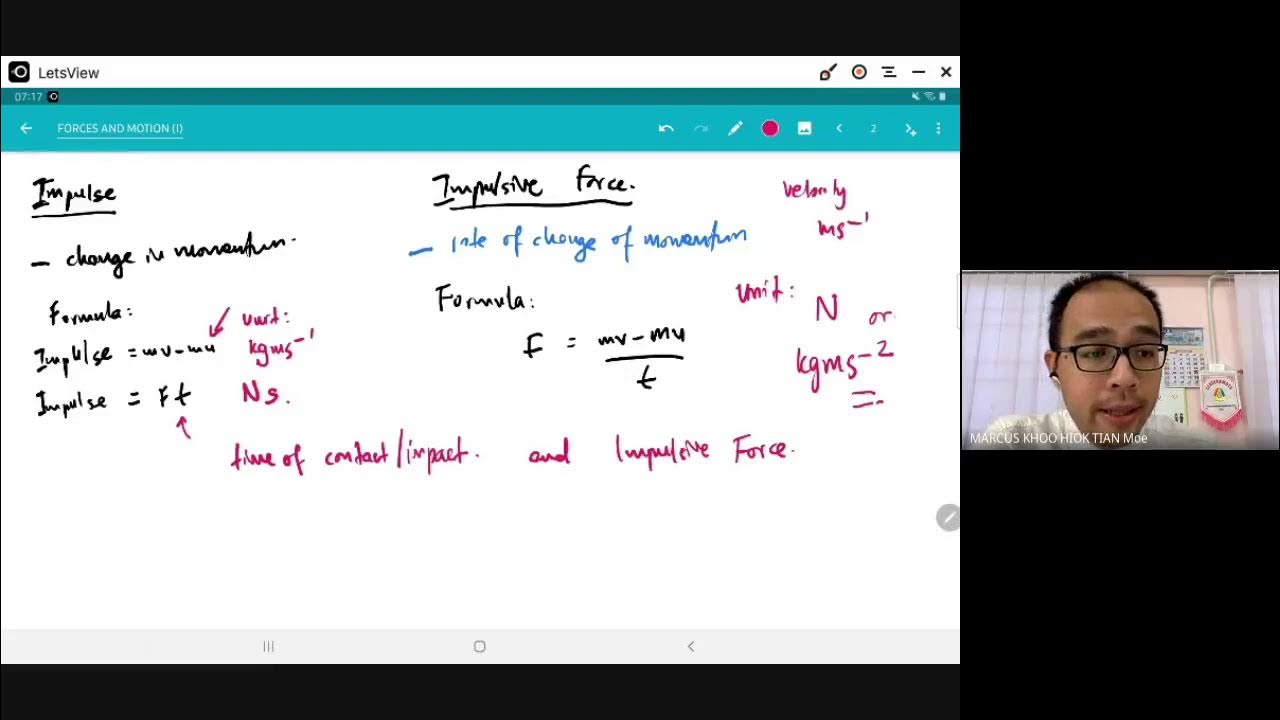 LetsView
07:17
FORCES AND MOTION (I)
2
Impulse
- change in momentum.
Formula:
Impulse = mv - mu
unit:
kgms⁻¹
Impulse = Ft
Ns.
Impulsive Force.
- rate of change of momentum
Formula:
F = mv - mu / t
velocity
ms⁻¹
unit:
N or
kgms⁻²
time of contact/impact. and Impulsive Force.
MARCUS KHOO HIOK TIAN Moe